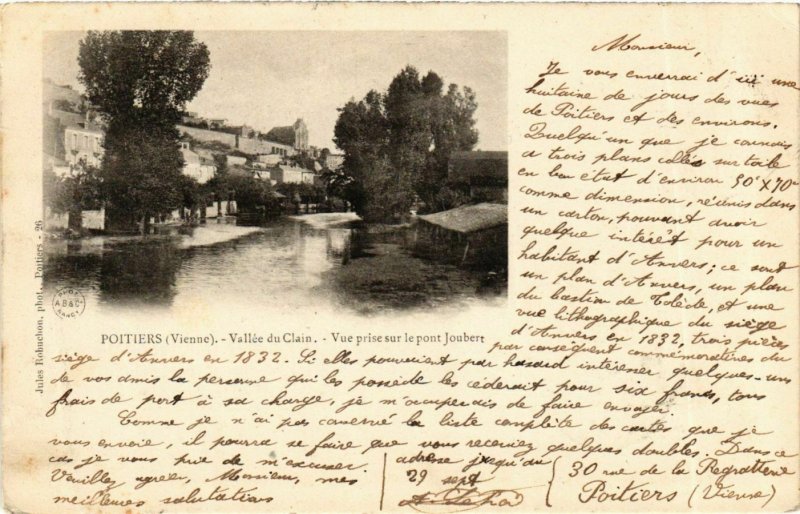 Monsieur,
Je vous enverrai d'ici une
huitaine de jours des vues
de Poitiers et des environs.
Quelqu'un que je connais
a trois plans collés sur toile
en bon état d'environ 50ᶜ × 70ᶜ
comme dimension, réunis dans
un carton, pouvant avoir
quelque intérêt pour un
habitant d'Anvers; ce sont
un plan d'Anvers, un plan
du bastion de Tolède, et une
vue lithographique du siège
d'Anvers en 1832, trois pièces
par conséquent commémoratives du
siège d'Anvers en 1832. Si elles pouvaient par hasard intéresser quelques-uns
de vos amis la personne qui les possède les céderait pour six francs, tous
frais de port à sa charge, je m'occuperais de faire envoyer.
Comme je n'ai pas conservé la liste complète des cartes que je
vous envoie, il pourra se faire que vous receviez quelques doubles. Dans ce
cas je vous prie de m'excuser.
Veuillez agréer, Monsieur, mes
meilleures salutations
adresse jusqu'au
29 sept
30 rue de la Regratterie
Poitiers (Vienne)
POITIERS (Vienne). - Vallée du Clain. - Vue prise sur le pont Joubert
Jules Robuchon, phot., Poitiers - 26
PHOT
AB&Cº
NANCY